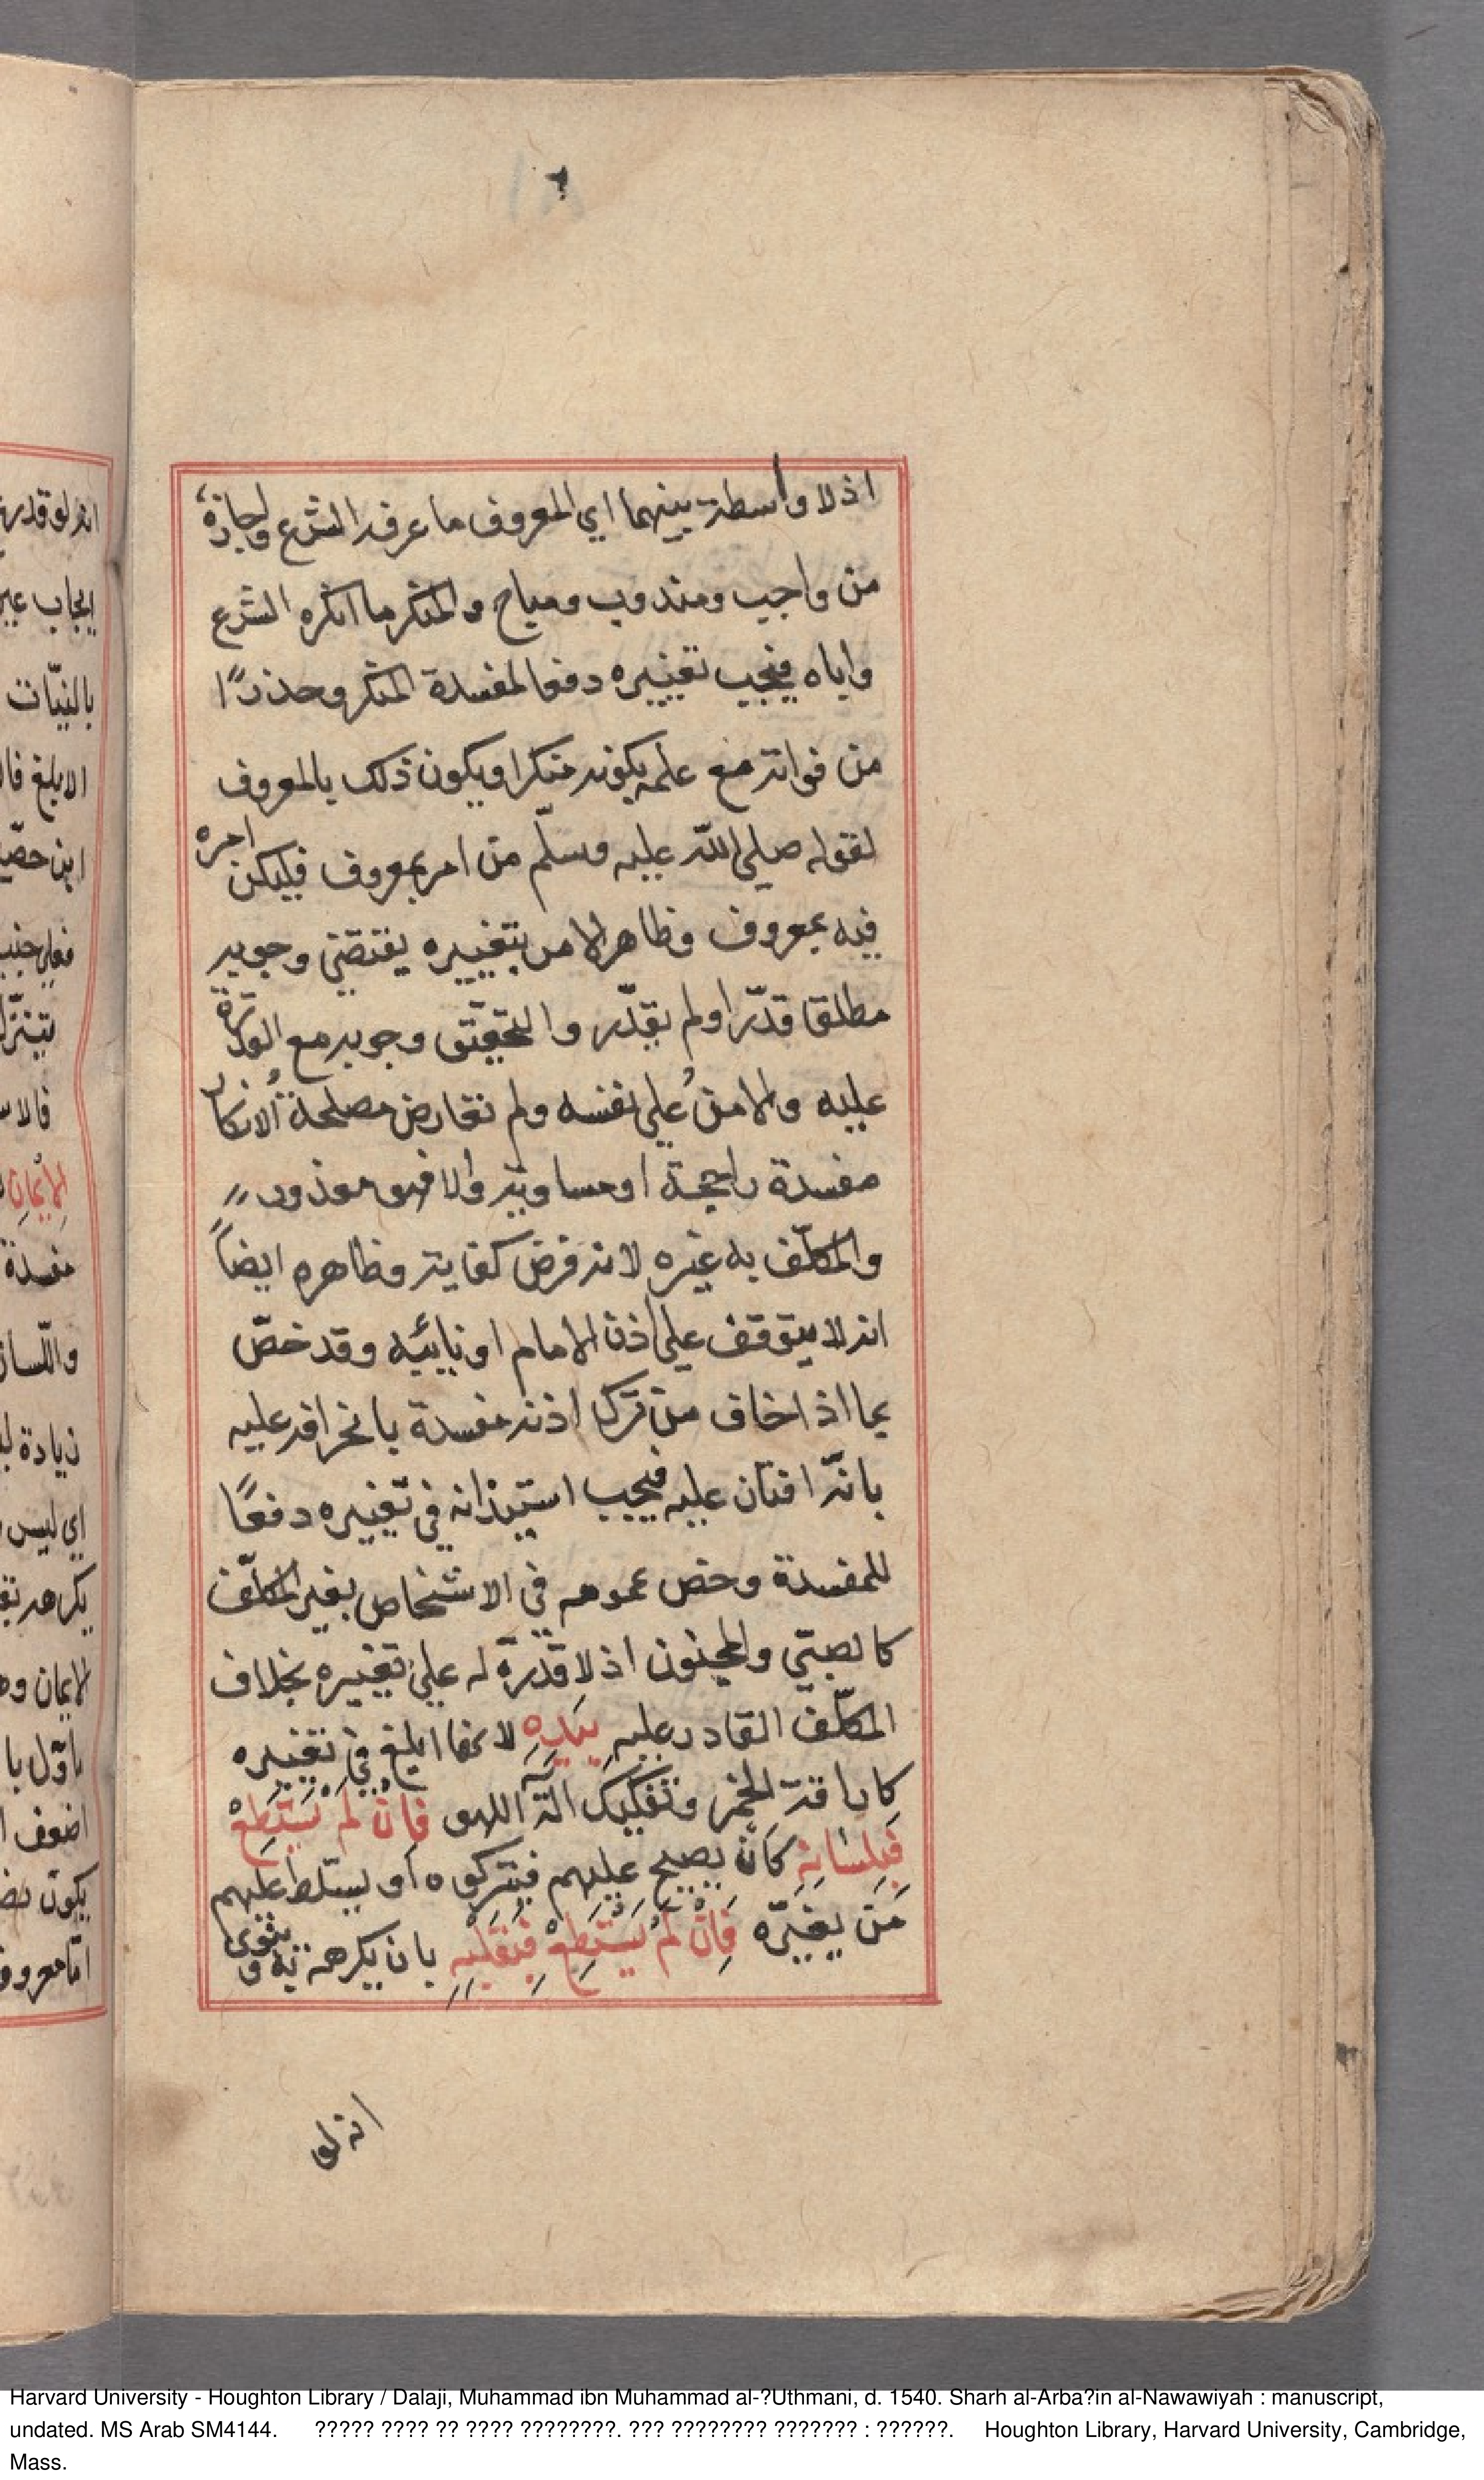 اذ لا واسطة بينهما اي المعروف ما عرفه الشرع واجازه
من واجب ومندوب ومباح والمنكر ما انكره الشرع
واياه فيجب تغييره دفعا لمفسدة المنكر وحذرًا
من فواته مع علمه بكونه منكرا ويكون ذلك بالمعروف
لقوله صلى الله عليه وسلّم من امر بمعروف فليكن امره
فيه بمعروف وظاهر الامر بتغييره يقتضي وجوبه
مطلقا قدّر اولم يقدّر والتحقيق وجوبه مع القدرة
عليه والامن على نفسه ولم تعارض مصلحة الانكار
مفسدة راجحة او مساوية والا فهو معذور
والمكلّف به غيره لانه فرض كفاية وظاهره ايضاً
انه لا يتوقف على اذن الامام او نايئبه وقد خصّ
بما اذا خاف من ترك اذنه مفسدة بانخراقه عليه
بانّه افتان عليه فيجب استيذانه في تغييره دفعًا
للمفسدة وخص عمومه في الاشخاص بغير المكلّف
كالصبّي والمجنون اذ لا قدرة له على تغييره بخلاف
المكلّف القادر عليه بِيَدِهِ لانها ابلغ في تغييره
كاراقة الخمر وتفكيك الة اللهو فَاِنْ لَمْ يَسْتَطِعْ
فَبِلِسَانِهِ كَاَنْ يصيح عليهم فيتركوه او يسلّط عليهم
مَن يغيّره فَاِنْ لَمْ يَسْتَطِعْ فَبِقَلْبِهِ بان يكرهه به وينوى
انه لو
انه لو قدر
ايجاب
بالنيّات
الابلغ
فالا
الايمان
مفسدة
زيادة
اي ليس
الايمان
اضعف
يكون
Harvard University - Houghton Library / Dalaji, Muhammad ibn Muhammad al-?Uthmani, d. 1540. Sharh al-Arba?in al-Nawawiyah : manuscript,
undated. MS Arab SM4144. ????? ???? ?? ???? ????????. ??? ???????? ??????? : ??????. Houghton Library, Harvard University, Cambridge,
Mass.